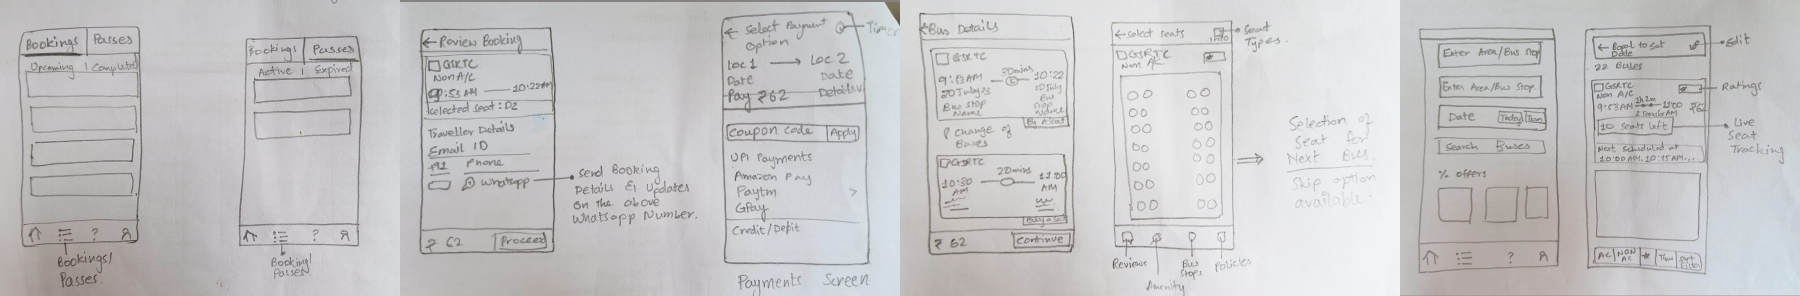 Bookings Passes
Upcoming | Completed
?
Bookings/
Passes.
Bookings Passes
Active | Expired
?
Booking/
Passes.
← Review Booking
GSRTC
Non A/C
9:53 AM — 10:22AM
Selected seat: D2
Traveller Details
Email ID
+91 Phone
Whatsapp
₹ 62 Proceed
Send Booking
Details & Updates
on the above
Whatsapp Number.
← Select Payment
Option
Timer
Loc 1 → Loc 2
Date Date
Pay ₹62
Coupon Code Apply
UPI Payments
Amazon Pay
Paytm
GPay
>
Credit/Debit
Payments Screen
← Bus Details
GSRTC
9:53 AM 30mins 10:22
20 July 23 20 July
Bus Stop Bus Stop
Name Name
change of
Buses
GSRTC
10:30 20mins 11:00
AM AM
₹ 62 Continue
← Select Seats
Info
Smart
Types.
GSRTC
Non A/C
Reviews
Amenity
Bus
Stops
Policies
⇒
Selection of
Seat for
Next Bus.
Skip option
available.
Enter Area/Bus Stop
Enter Area/Bus Stop
Date Today Tom
Search Buses
% offers
?
← Bopal to Sat
Date
Edit
22 Buses
GSRTC
Non A/C
Ratings
9:53AM 11:00
10 Seats left
Live
Seat
Tracking
Next Scheduled at
10:00AM, 10:15AM...
AC NON AC Time